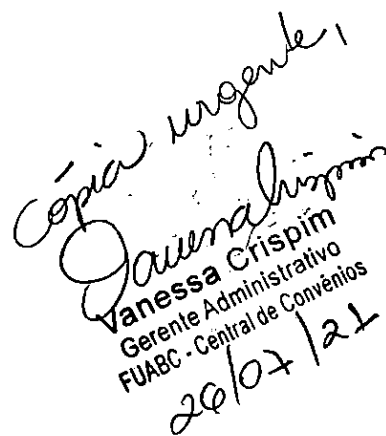 Cópia urgente,
Vanessa Crispim
Vanessa Crispim
Gerente Administrativo
FUABC - Central de Convênios
26/07/21